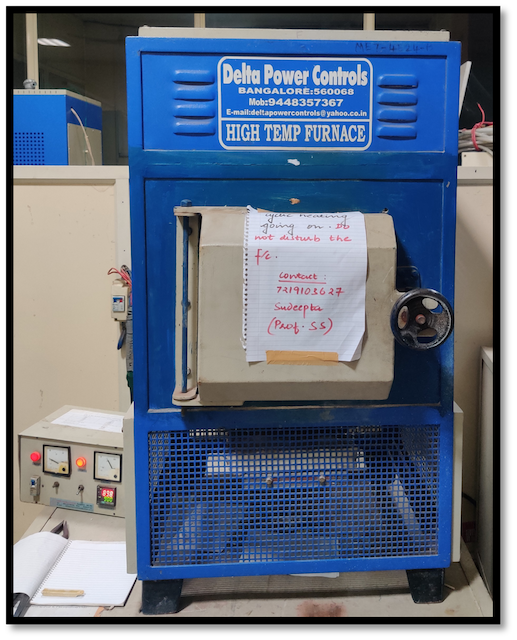 Delta Power Controls
BANGALORE:560068
Mob:9448357367
E-mail:deltapowercontrols@yahoo.co.in
HIGH TEMP FURNACE
cyclic heating
going on. Do
not disturb the
f/c.
contact :
7219103627
Sudeepta
(Prof. SS)